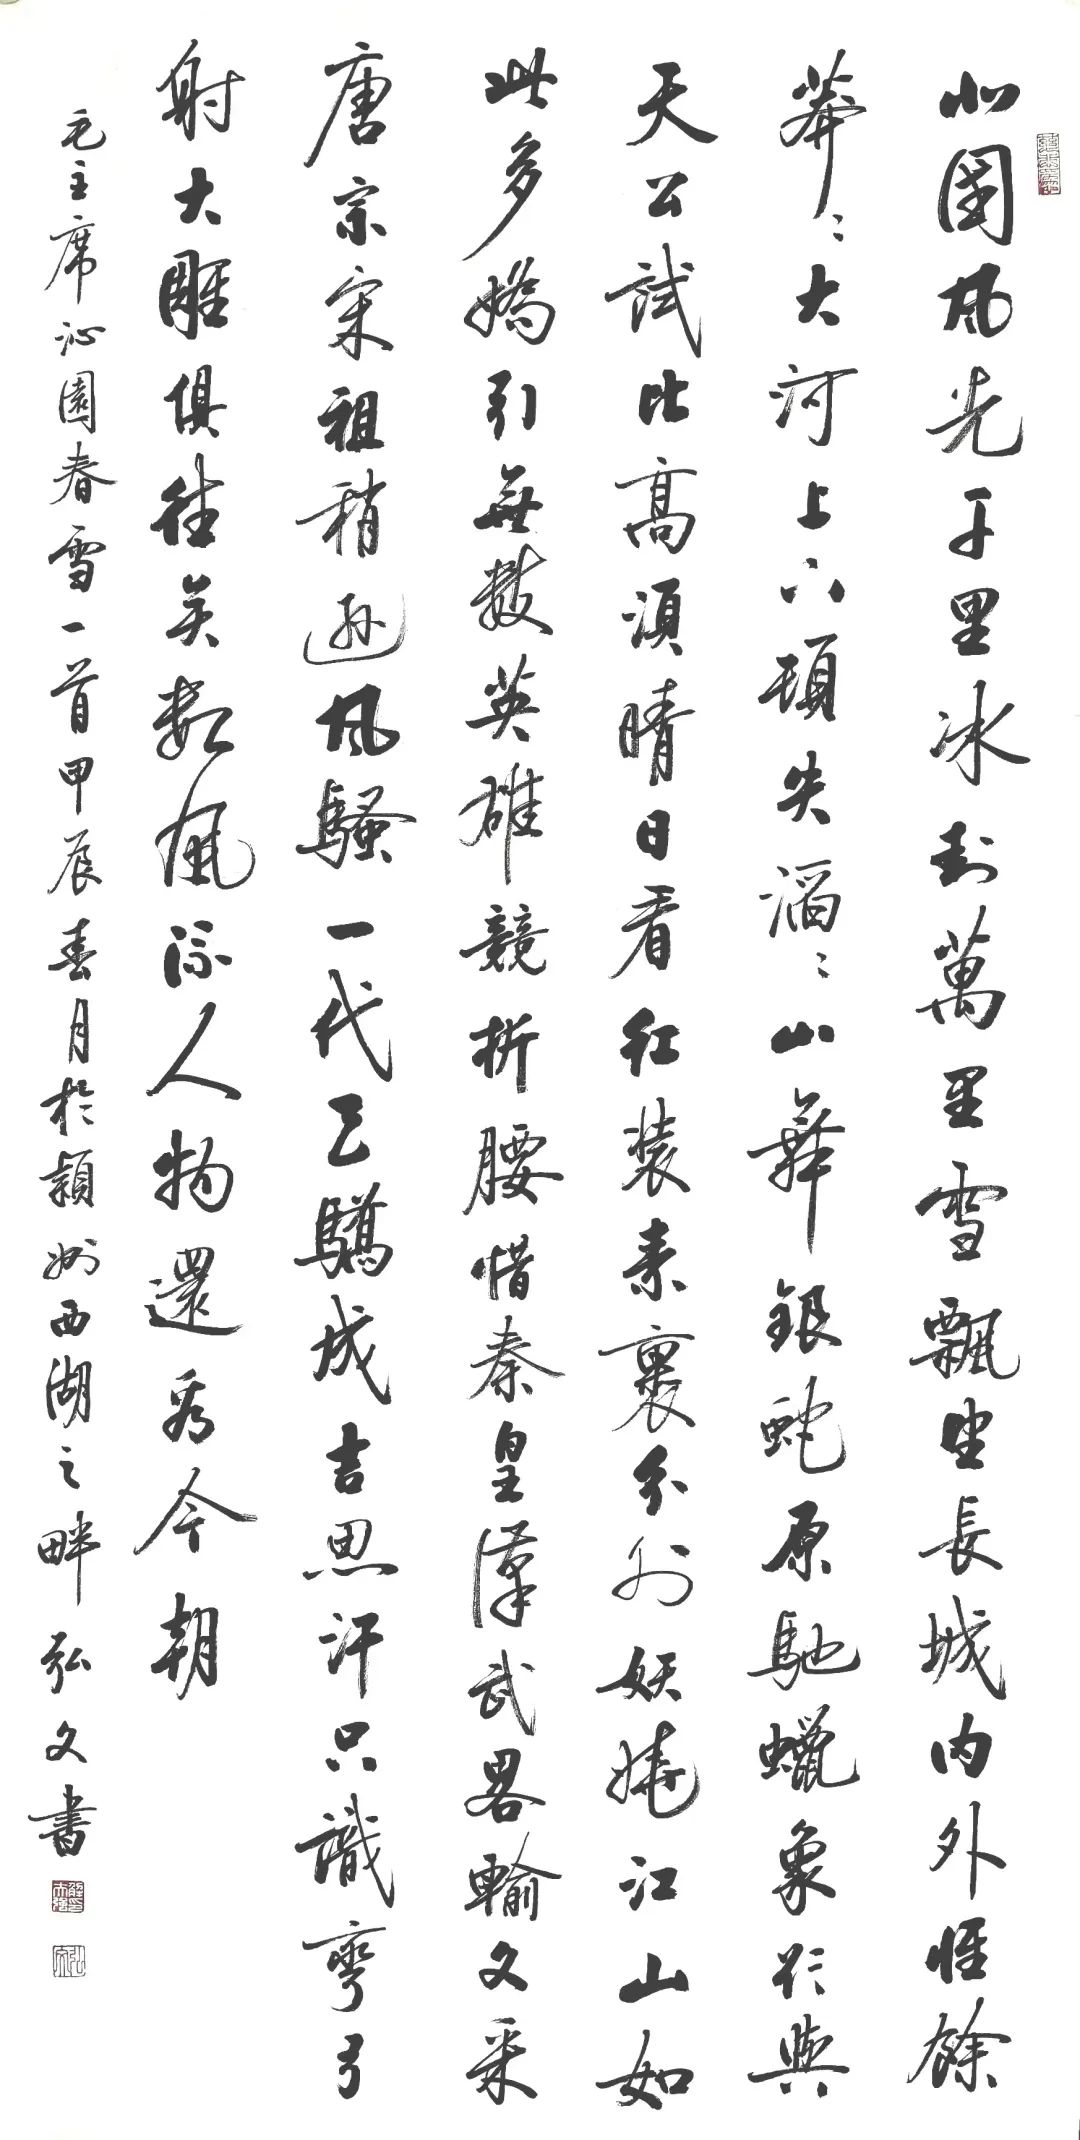 北國風光千里冰封萬里雪飄望長城内外惟餘
莽〻大河上下頓失滔〻山舞銀蛇原馳蠟象欲與
天公試比高須晴日看紅装素裹分外妖嬈江山如
此多嬌引無數英雄競折腰惜秦皇漢武畧輸文采
唐宗宋祖稍遜風騷一代天驕成吉思汗只識彎弓
射大雕俱往矣數風流人物還看今朝
毛主席沁園春雪一首甲辰春月於潁州西湖之畔弘文書
弘文